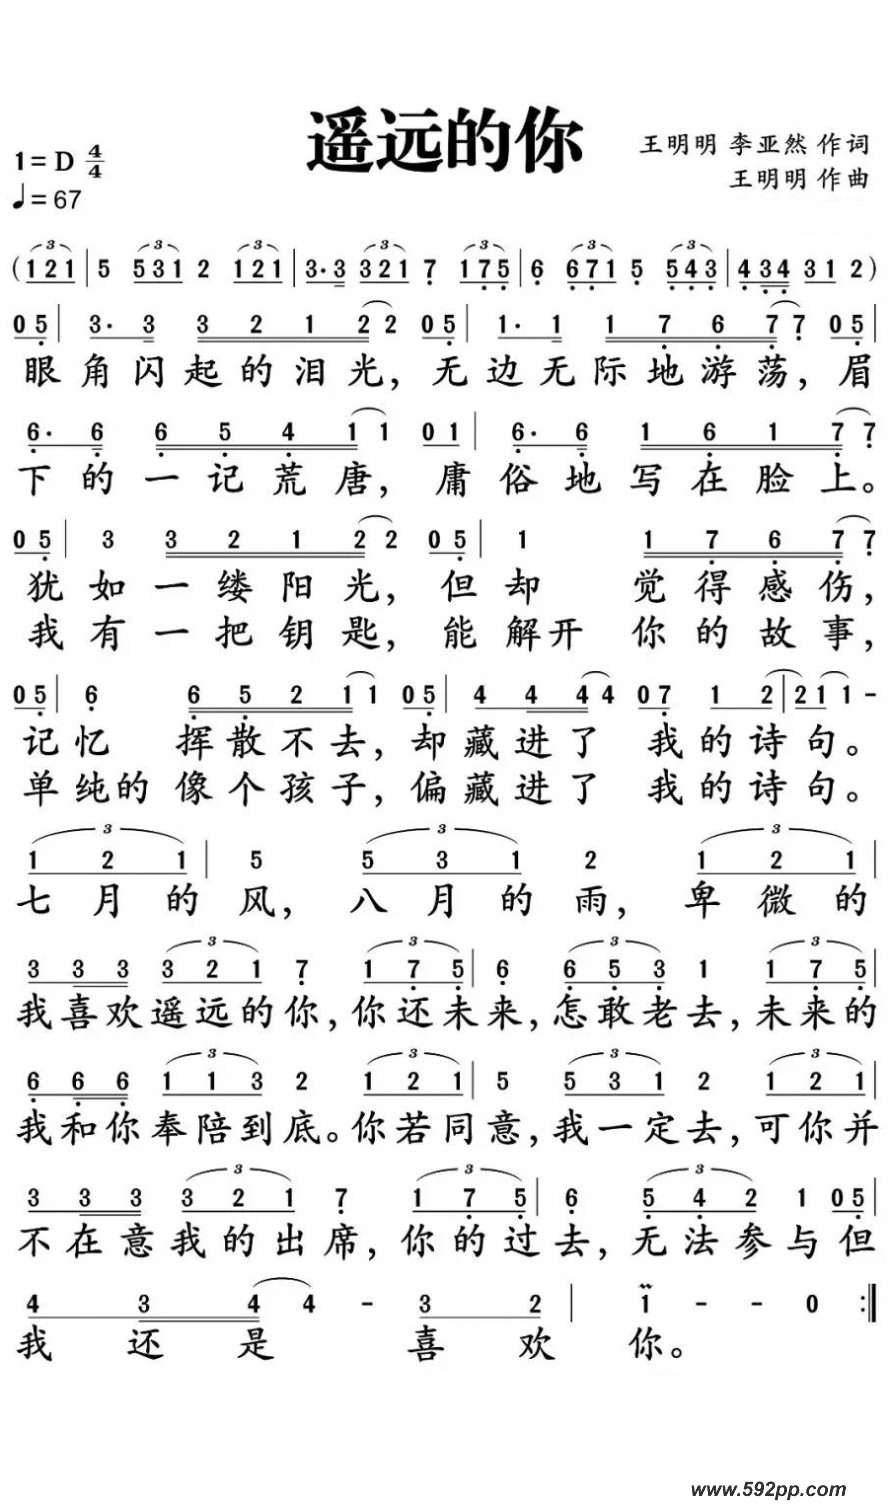 遥远的你
1=D 4/4
♩=67
王明明 李亚然 作词
王明明 作曲
(121|5 531 2 121|3·3 321 7 175|6 671 5 543|434 312)
05|3· 3 3 2 1 2 2 05|1· 1 1 7 6 7 7 05|
眼角闪起的泪光,无边无际地游荡,眉
6· 6 6 5 4 1 1 01|6· 6 1 6 1 7 7
下的一记荒唐,庸俗地写在脸上。
05|3 3 2 1 2 2 05|1 1 7 6 7 7
犹如一缕阳光,但却 觉得感伤,
我有一把钥匙,能解开 你的故事,
05|6 6 5 2 1 1 05|4 4 4 4 07 1 2|21 1 -
记忆 挥散不去,却藏进了 我的诗句。
单纯的 像个孩子,偏藏进了 我的诗句。
1 2 1|5 5 3 1 2 1 2 1|
七月的风,八月的雨,卑微的
3 3 3 3 2 1 7 1 7 5|6 6 5 3 1 1 7 5|
我喜欢遥远的你,你还未来,怎敢老去,未来的
6 6 6 1 1 3 2 1 2 1|5 5 3 1 2 1 2 1|
我和你奉陪到底。你若同意,我一定去,可你并
3 3 3 3 2 1 7 1 7 5|6 5 4 2 1 05|
不在意我的出席,你的过去,无法参与但
4 3 4 4 - 3 2|1 - - 0 :||
我还是喜欢你。
www.592pp.com